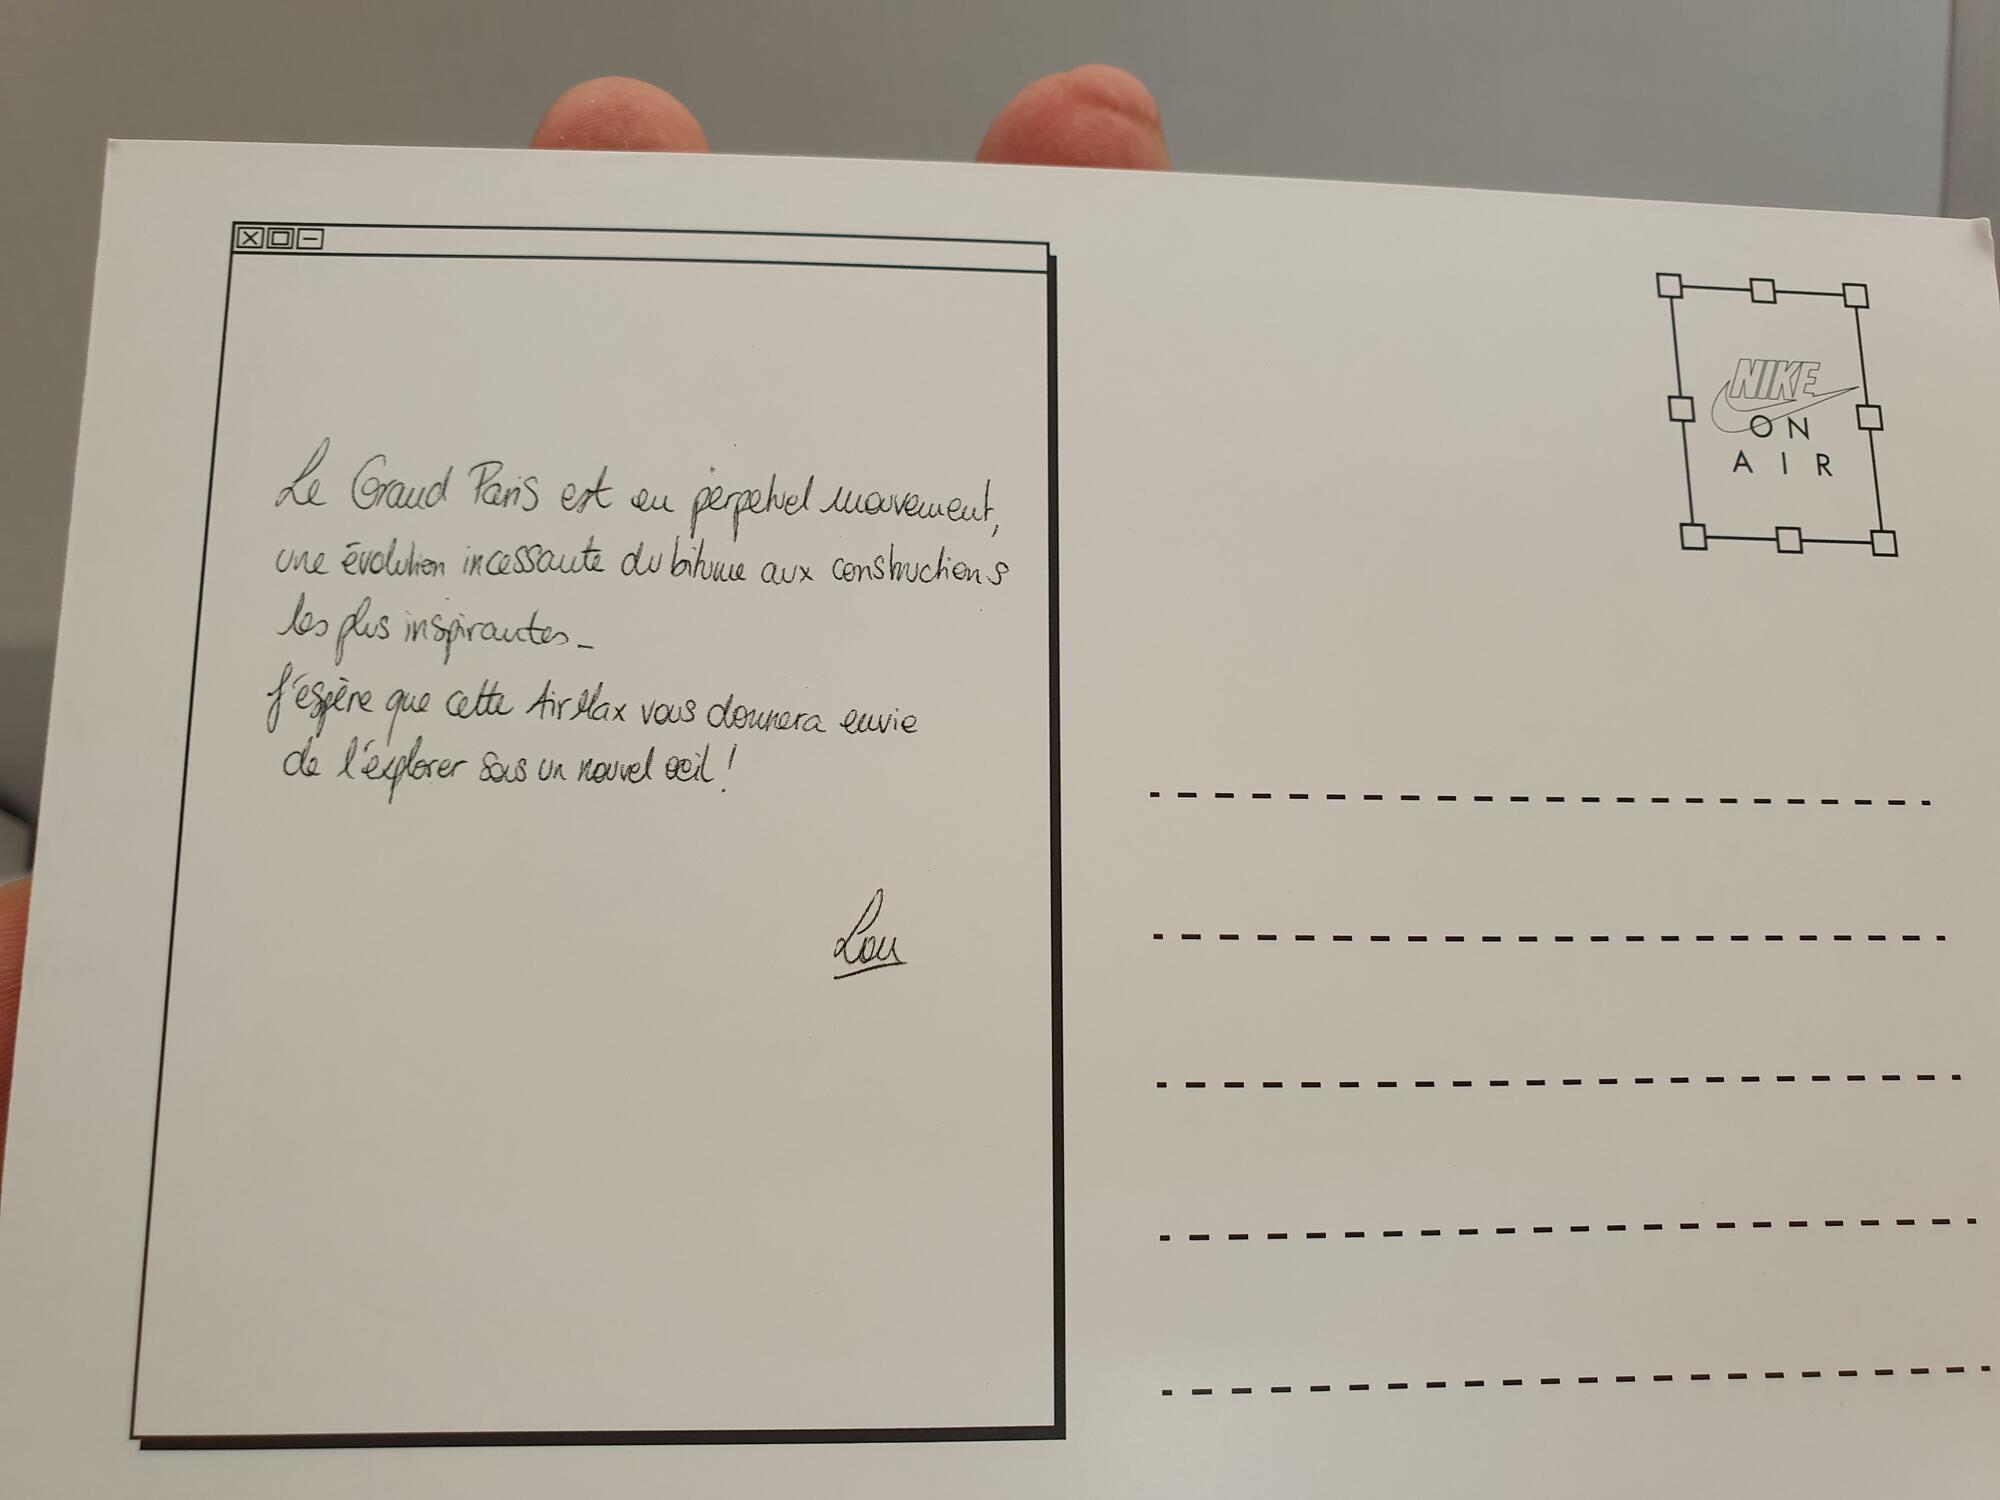 Le Grand Paris est en perpétuel mouvement,
une évolution incessante du bitume aux constructions
les plus inspirantes_
J'espère que cette Air Max vous donnera envie
de l'explorer sous un nouvel oeil !
Lou
NIKE
ON
AIR